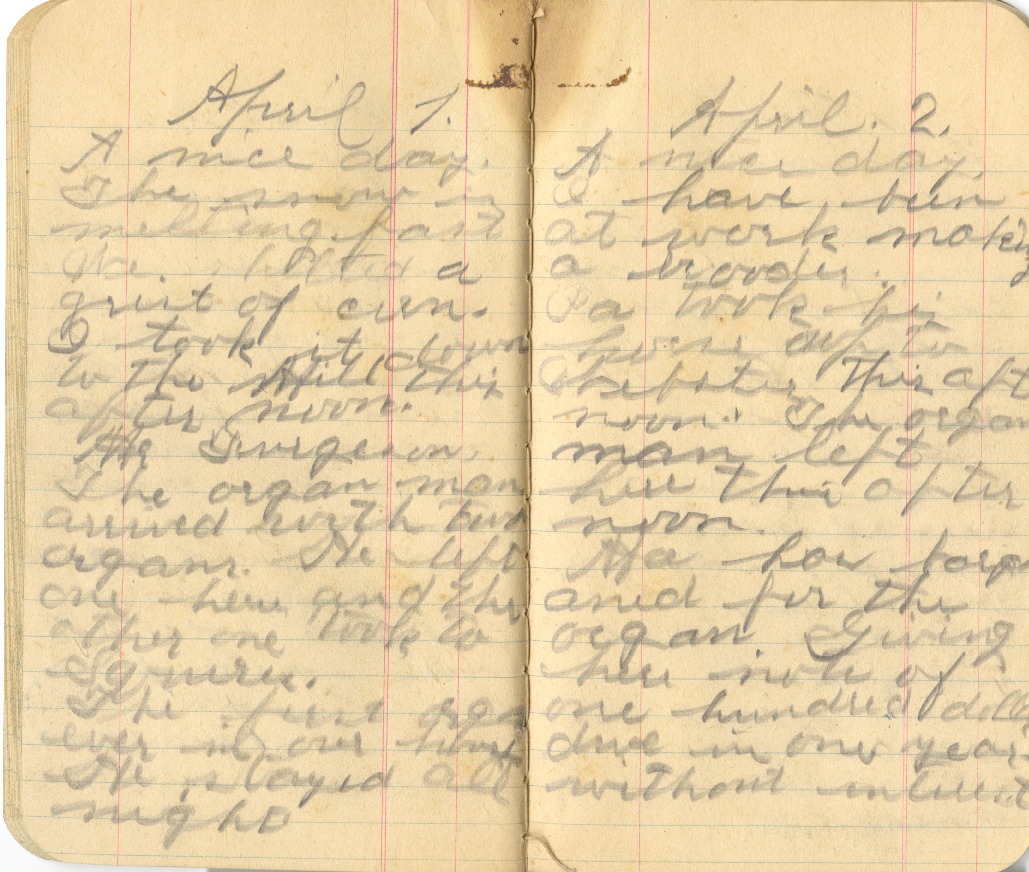 April 1.
A nice day.
The snow is
melting fast
Pa. shelled a
grist of corn.
I took it down
to the Mill this
after noon.
The organ man
arrived with two
organs. He left
one here and the
other one took to
Squires.
The first orga
ever in our house
He stayed all
night
April. 2.
A nice day.
I have been
at work making
a brooder.
Pa took his
horse up to
Webster this aft
noon. The organ
man left
here this after
noon.
Ma has barg
aned for the
organ. Giving
her note of
one hundred dolla
due in one year
without interest